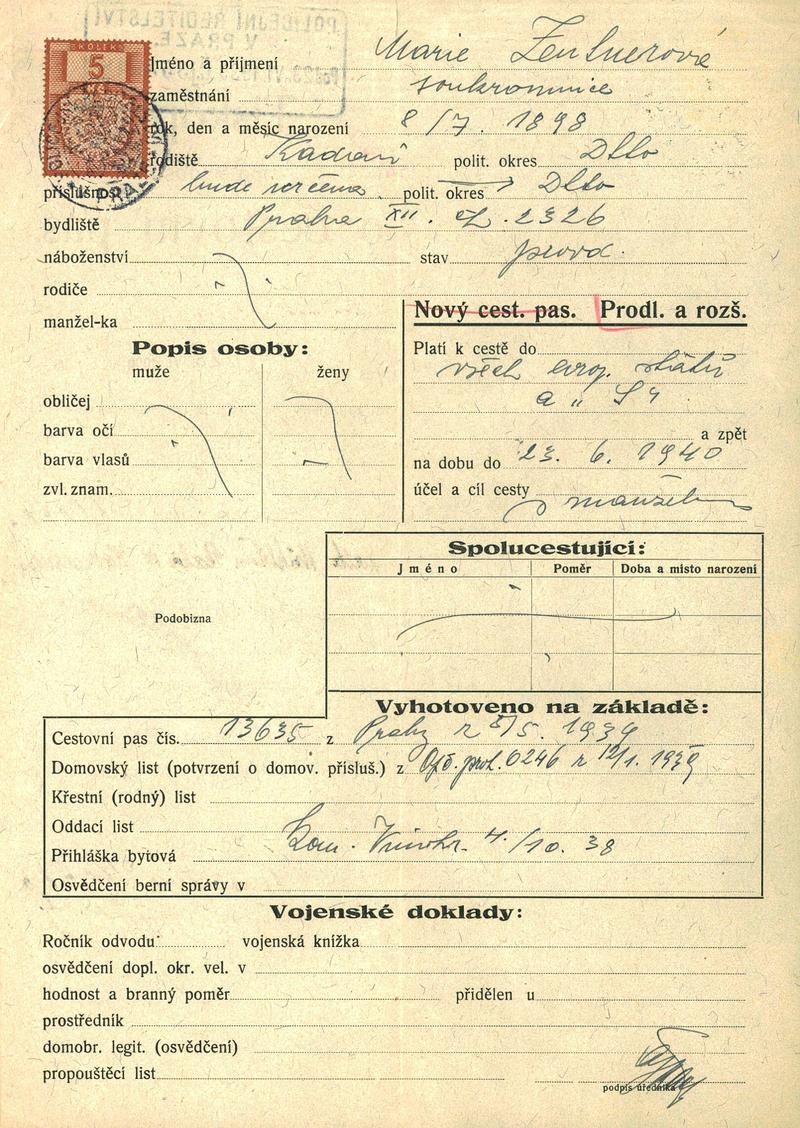 KOLEK
5
POLICEJNÍ ŘEDITELSTVÍ
V PRAZE.
Jméno a příjmení Marie Zentnerová
zaměstnání soukromnice
rok, den a měsíc narození 8/7. 1898
rodiště Kadaň polit. okres Dtto
příslušnost bude určena polit. okres Dtto
bydliště Praha XII. čl. 2326
náboženství stav provd.
rodiče
manžel-ka
Nový cest. pas. Prodl. a rozš.
Popis osoby:
muže ženy
obličej
barva očí
barva vlasů
zvl. znam.
Platí k cestě do
všech evrop. států
a
a zpět
na dobu do 23. 6. 1940
účel a cíl cesty
Spolucestující:
Jméno Poměr Doba a místo narození
Podobizna
Vyhotoveno na základě:
Cestovní pas čís. 13635 z Prahy z 1939
Domovský list (potvrzení o domov. přísluš.) z prot. 6246 z 12/1. 1939
Křestní (rodný) list
Oddací list
Přihláška bytová Kom. Vinohr. 4./10. 38
Osvědčení berní správy v
Vojenské doklady:
Ročník odvodu vojenská knížka
osvědčení dopl. okr. vel. v
hodnost a branný poměr přidělen u
prostředník
domobr. legit. (osvědčení)
propouštěcí list
podpis úředníka